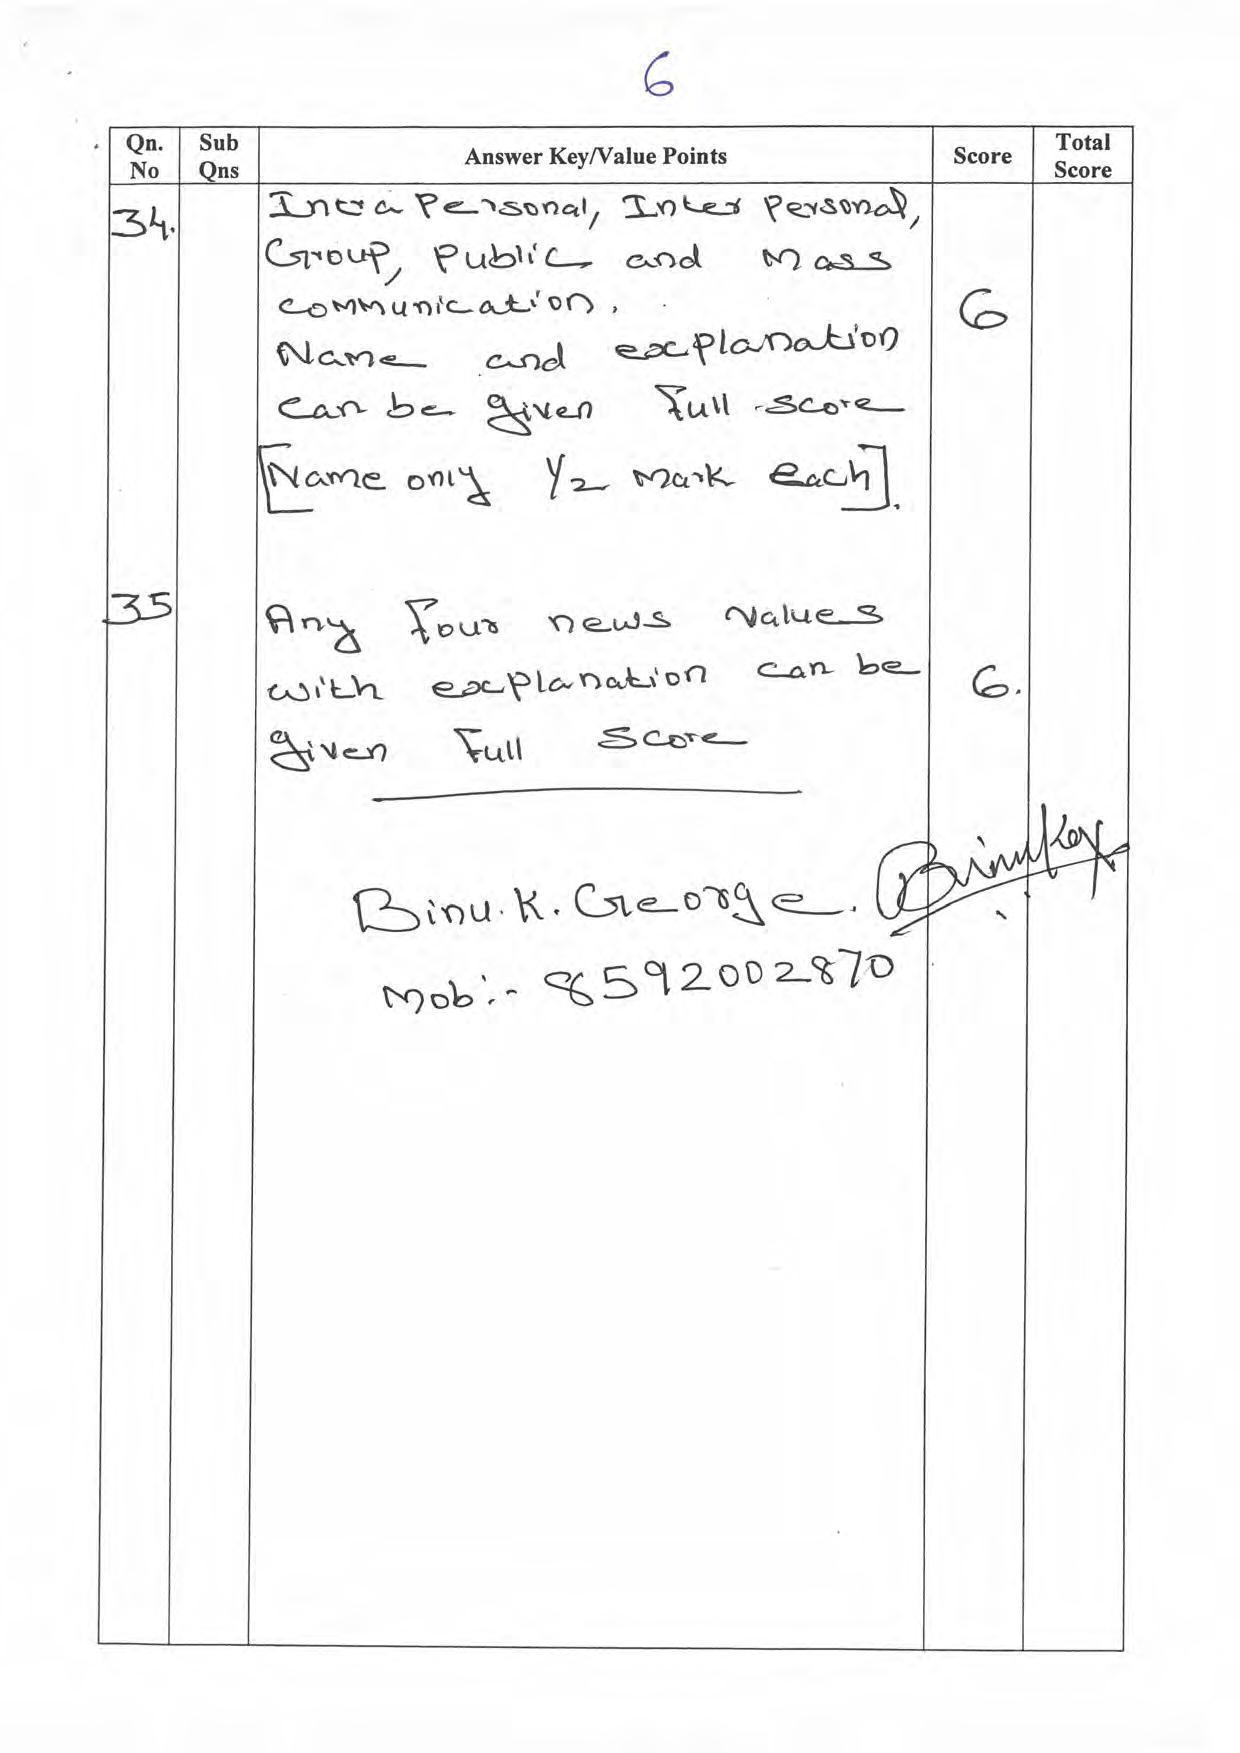 6
Qn. No
Sub Qns
Answer Key/Value Points
Score
Total Score
34.
Intra Personal, Inter Personal,
Group, Public and Mass
communication.
6
Name and explanation
can be given Full score
[Name only 1/2 Mark each].
35
Any Four news values
with explanation can be
6.
given Full Score
Binu. K. George.
Mob:- 8592002870